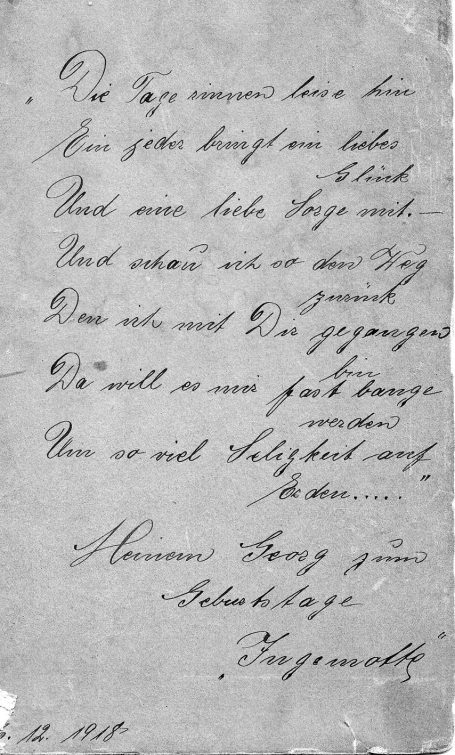 „Die Tage rinnen leise hin
Ein jeder bringt ein liebes
Glück
Und eine liebe Sorge mit.—
Und schau ich so den Weg
zurück
Den ich mit Dir gegangen
bin
Da will es mir fast bange
werden
Um so viel Seligkeit auf
Erden....."
Meinem Georg zum
Geburtstage
„Ingemotte"
. 12. 1918